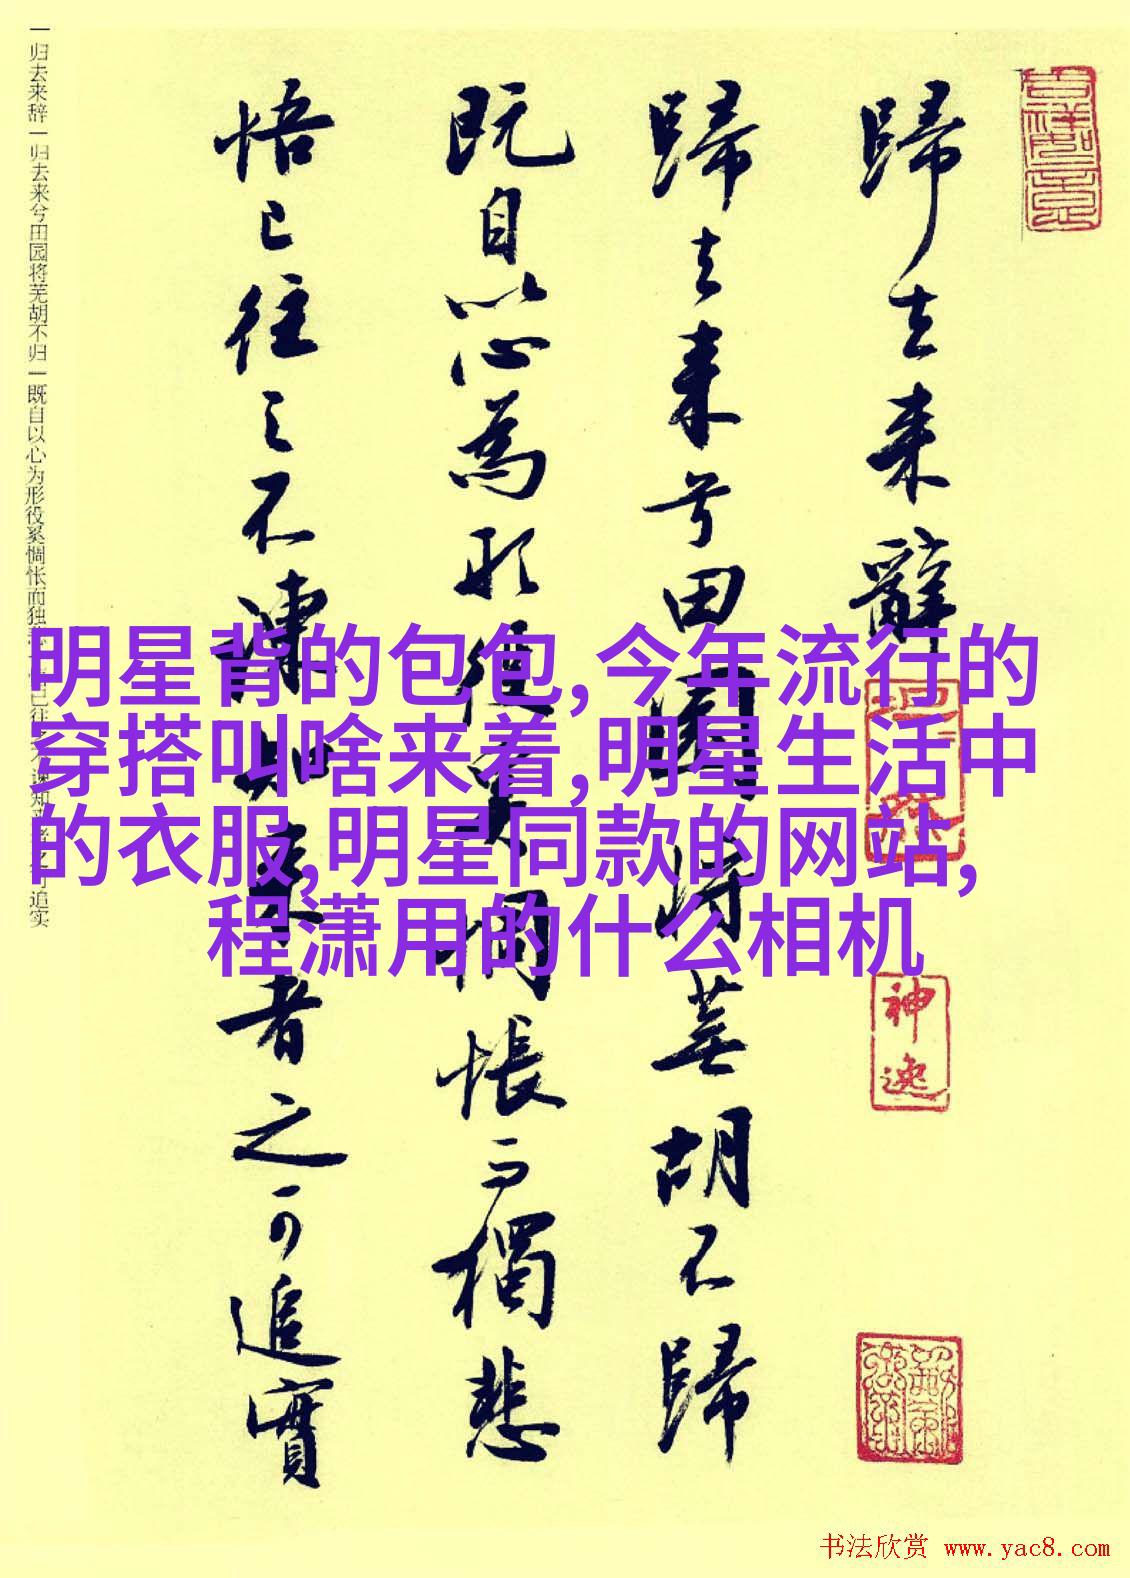 歸去来辭
歸去来兮田園将蕪胡不歸
既自以心為形役奚惆悵而獨悲
悟已往之不諫知来者之可追實
一归去来辞一归去来兮田园将芜胡不归一既自以心为形役奚惆怅而独
追实
明星背的包包,今年流行的
穿搭叫啥来着,明星生活中
的衣服,明星同款的网站,
程潇用的什么相机
神逸
书法欣赏 www.yac8.com